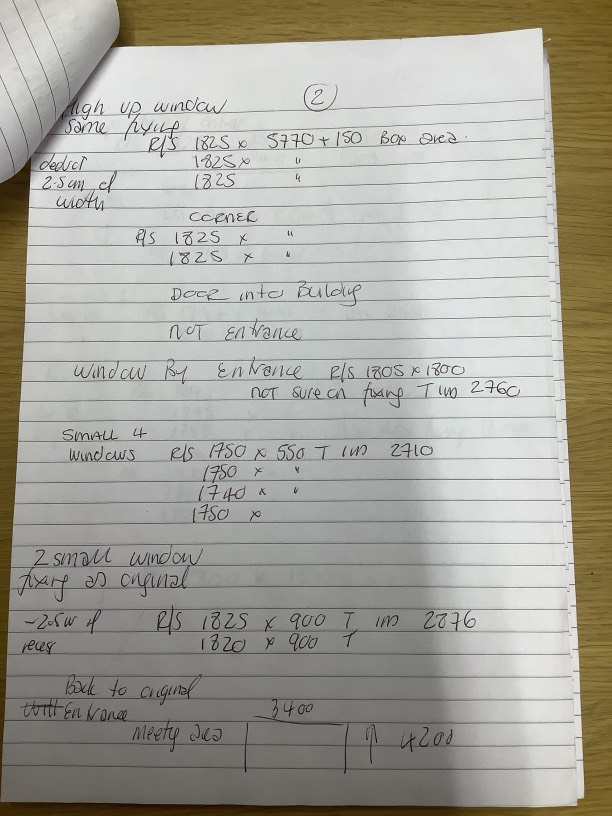 2
High up window
Same fixing
R/S 1825 x 5770 + 150 Box area.
deduct 1825 x "
2.5cm of 1825 "
width
CORNER
R/S 1825 x "
1825 x "
Door into Building
NOT Entrance
Window By Entrance R/S 1805 x 1800
not sure on fixing T 2760
SMALL 4
windows R/S 1750 x 550 T 2710
1750 x "
1740 x "
1750 x
2 small window
fixing as original
-2.5w of R/S 1825 x 900 T 2876
recess 1820 x 900 T
Back to original
Entrance 3400
Meety area ↑ 4200